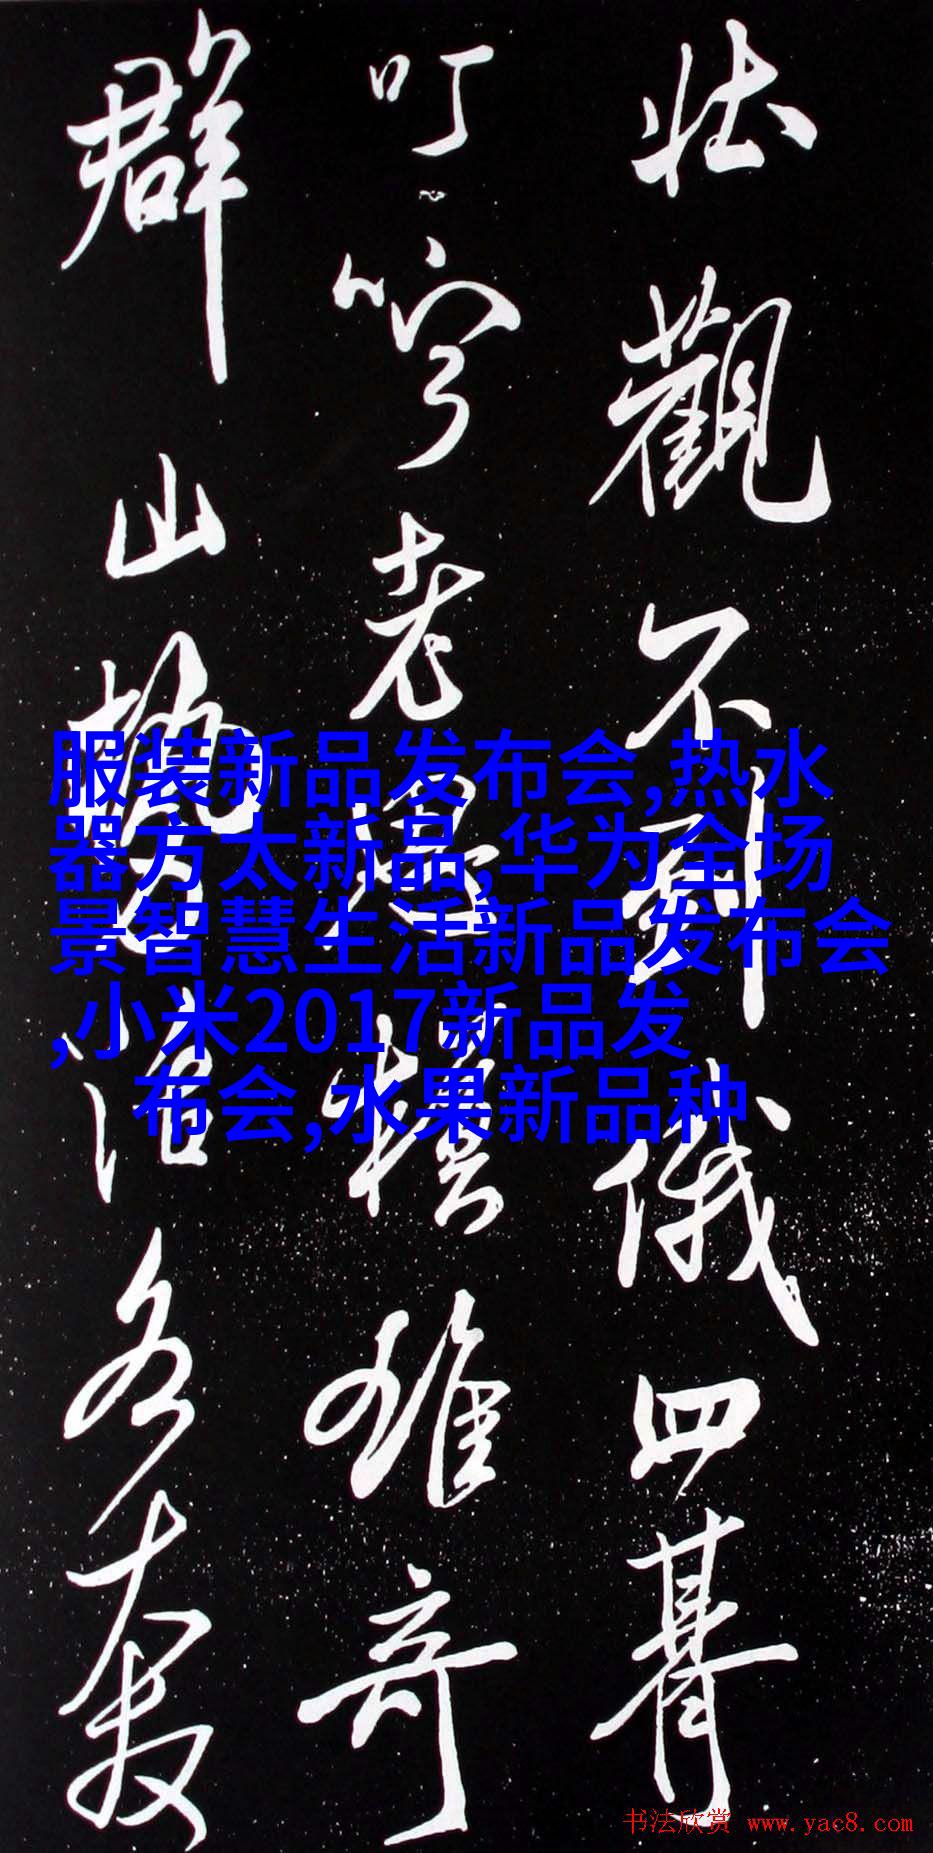 壮觀不到俄四
叮嚀老雄奇
群山勢峪各
服装新品发布会,热水
器方太新品,华为全场
景智慧生活新品发布会
,小米2017新品发
布会,水果新品种
书法欣赏 www.yac8.com